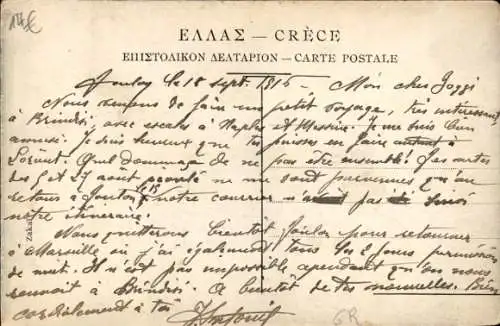 ΕΛΛΑΣ — CRÈCE
ΕΠΙΣΤΟΛΙΚΟΝ ΔΕΛΤΑΡΙΟΝ — CARTE POSTALE
Toulon le 18 sept. 1915 - Mon cher
Nous venons de faire un petit voyage, très intéressant
à Brindisi, avec escales à Naples et Messine. Je me suis bien
amusé. Je suis heureux que tu puisses en faire autant à
Lorient. Quel dommage de ne pas être ensemble! Tes cartes
des 5 et 27 août ne me sont parvenues qu'au
retour à Toulon, notre courrier n'ayant pas suivi
notre itinéraire.
Nous quitterons bientôt Toulon pour retourner
à Marseille où j'ai également tous les 2 jours permission
de nuit. Il n'est pas impossible cependant qu'on nous
renvoit à Brindisi. A bientôt de tes nouvelles. Bien
cordialement à toi